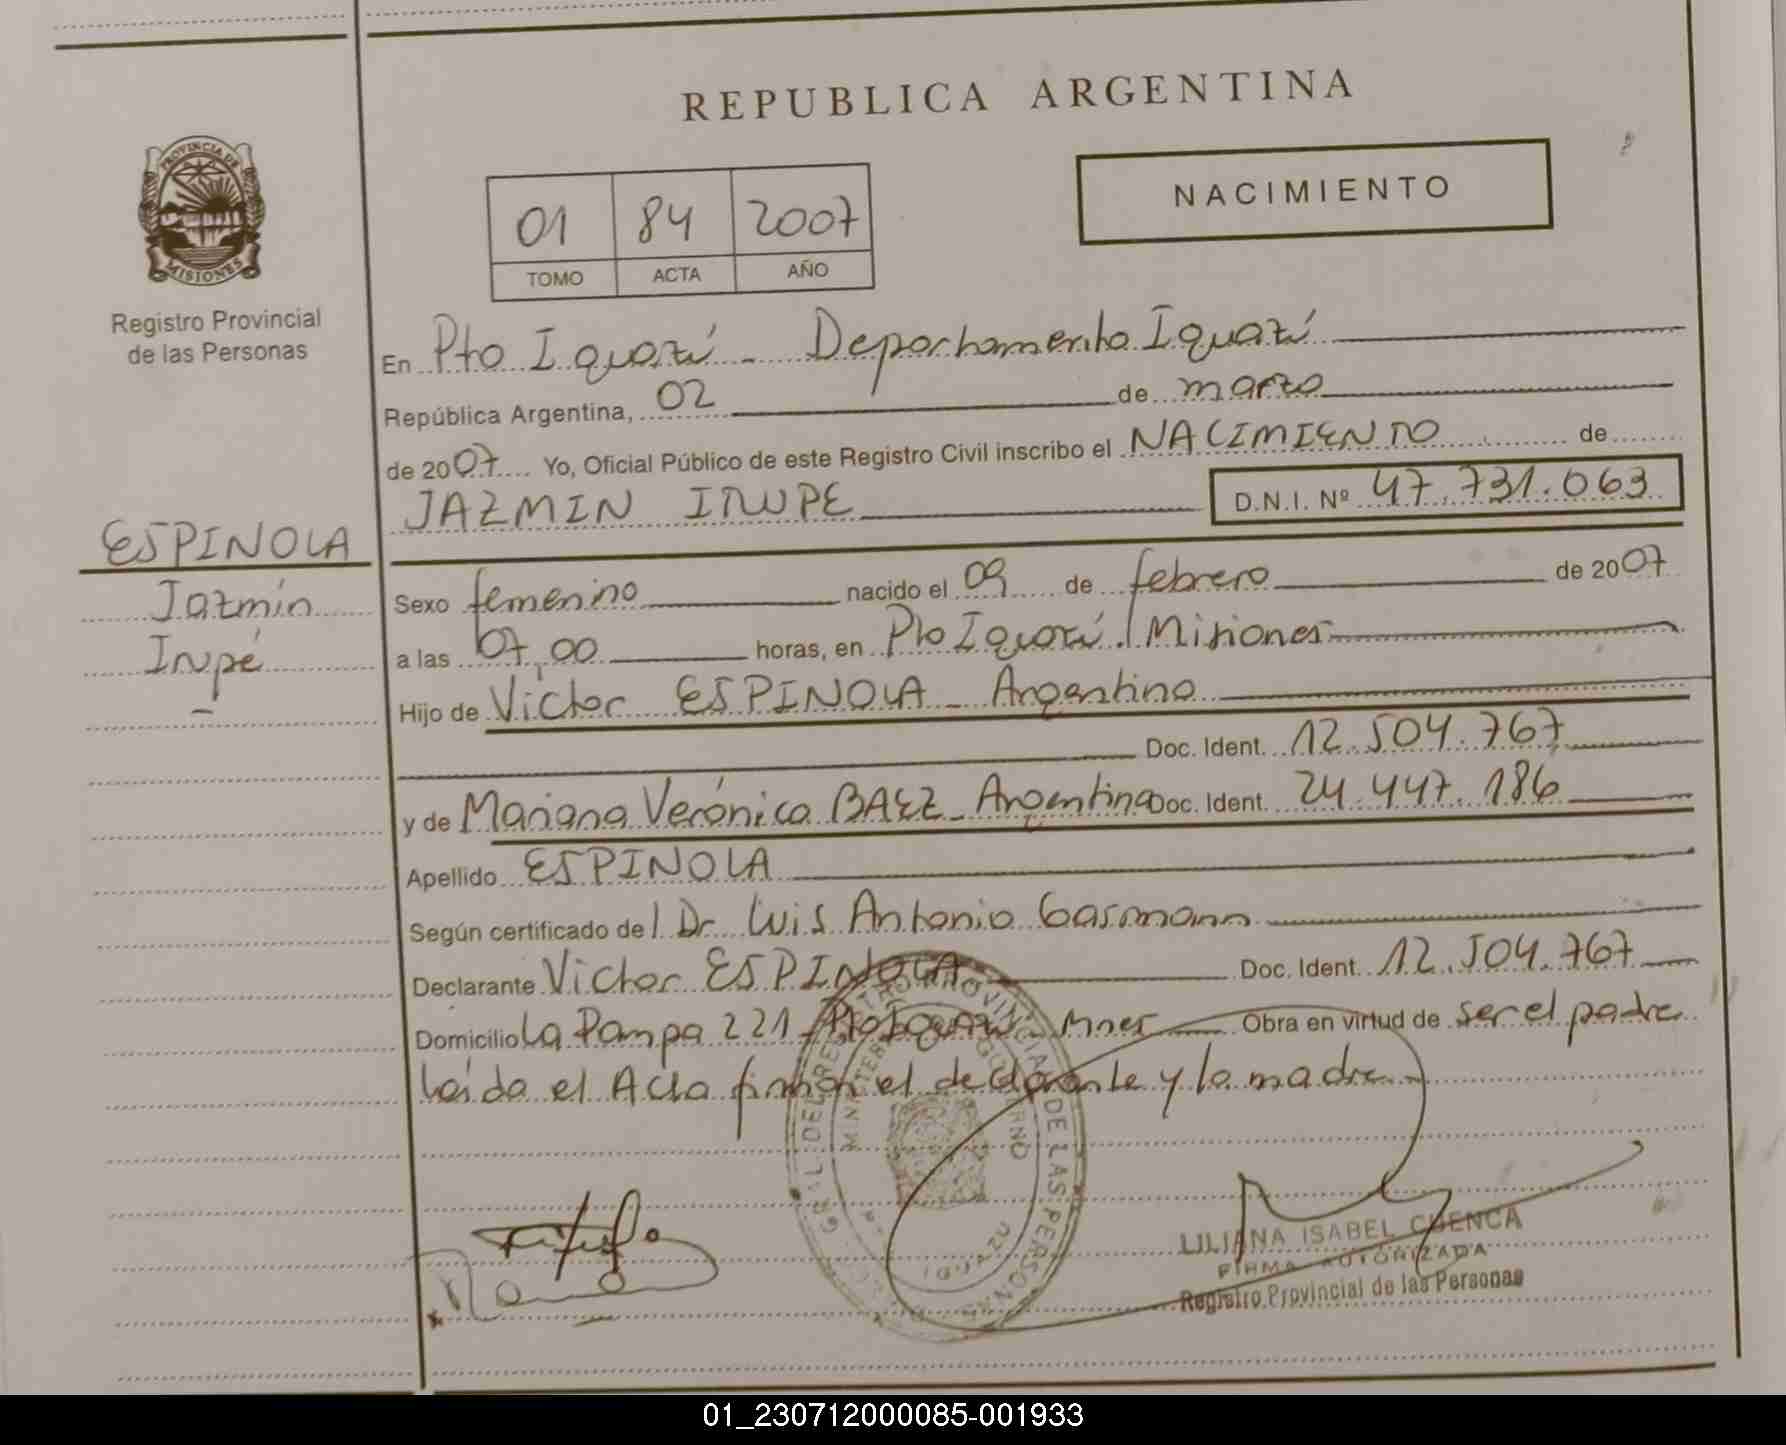 REPUBLICA ARGENTINA
NACIMIENTO
01 84 2007
TOMO ACTA AÑO
PROVINCIA DE
MISIONES
Registro Provincial
de las Personas
En Pto Iguazú - Departamento Iguazú
República Argentina, 02 de marzo
de 2007 Yo, Oficial Público de este Registro Civil inscribo el NACIMIENTO de
JAZMIN IRUPE D.N.I. Nº 47.731.063
ESPINOLA
Jazmín
Irupé
Sexo femenino nacido el 09 de febrero de 2007
a las 07,00 horas, en Pto Iguazú / Misiones
Hijo de Víctor ESPINOLA - Argentino
Doc. Ident. 12.504.767
y de Mariana Verónica BAEZ - Argentina Doc. Ident. 24.447.186
Apellido ESPINOLA
Según certificado de l Dr. Luis Antonio Gasmann
Declarante Víctor ESPINOLA Doc. Ident. 12.504.767
Domicilio La Pampa 221 - Pto Iguazú - Mnes Obra en virtud de ser el padre
Leída el Acta firman el declarante y la madre
LILIANA ISABEL CUENCA
FIRMA AUTORIZADA
Registro Provincial de las Personas
01_230712000085-001933